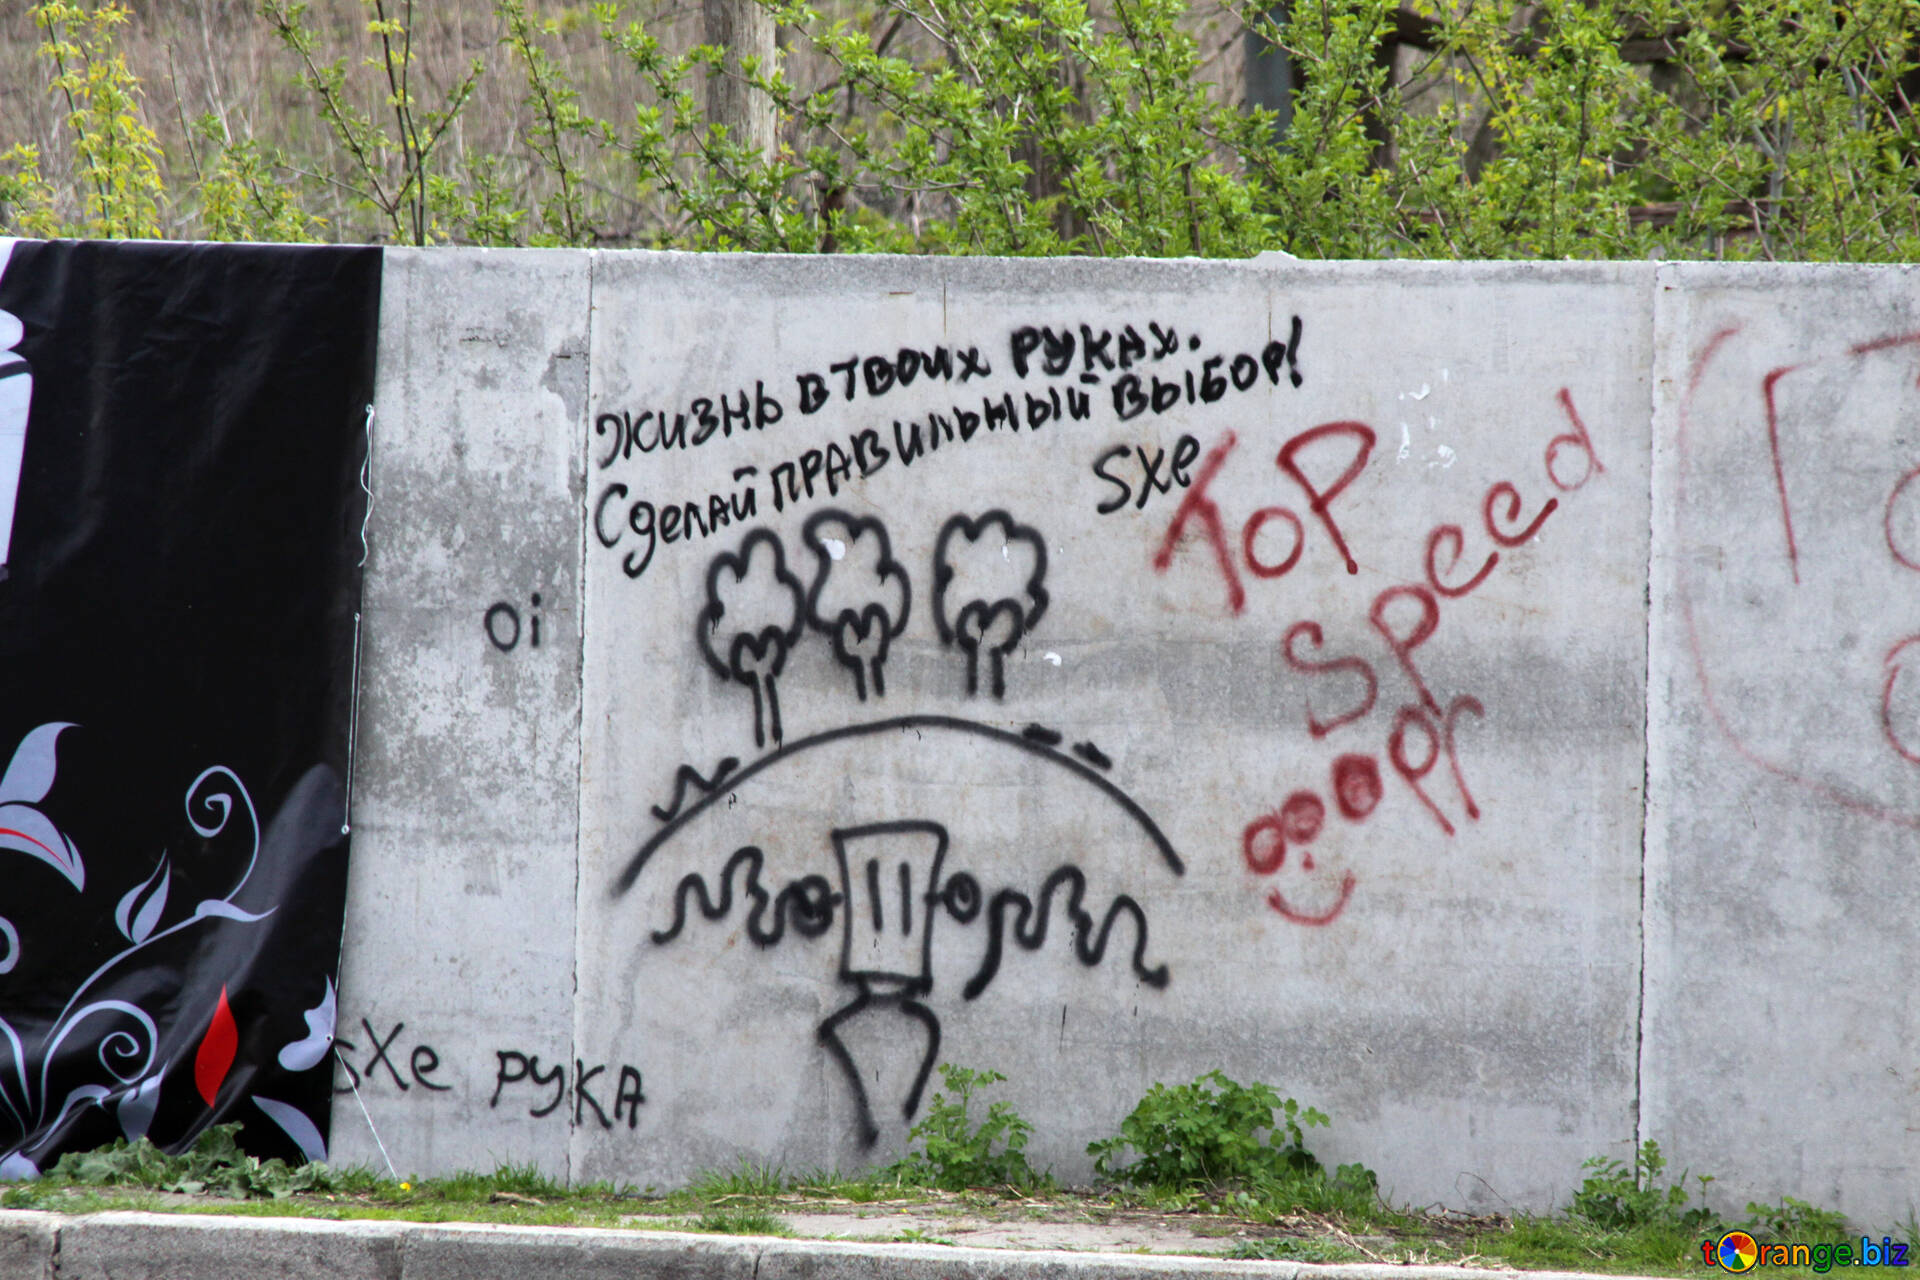 ЖИЗНЬ В ТВОИХ РУКАХ.
СДЕЛАЙ ПРАВИЛЬНЫЙ ВЫБОР!
sXe
TOP
SPeed
oi
sXe РУКА
torange.biz